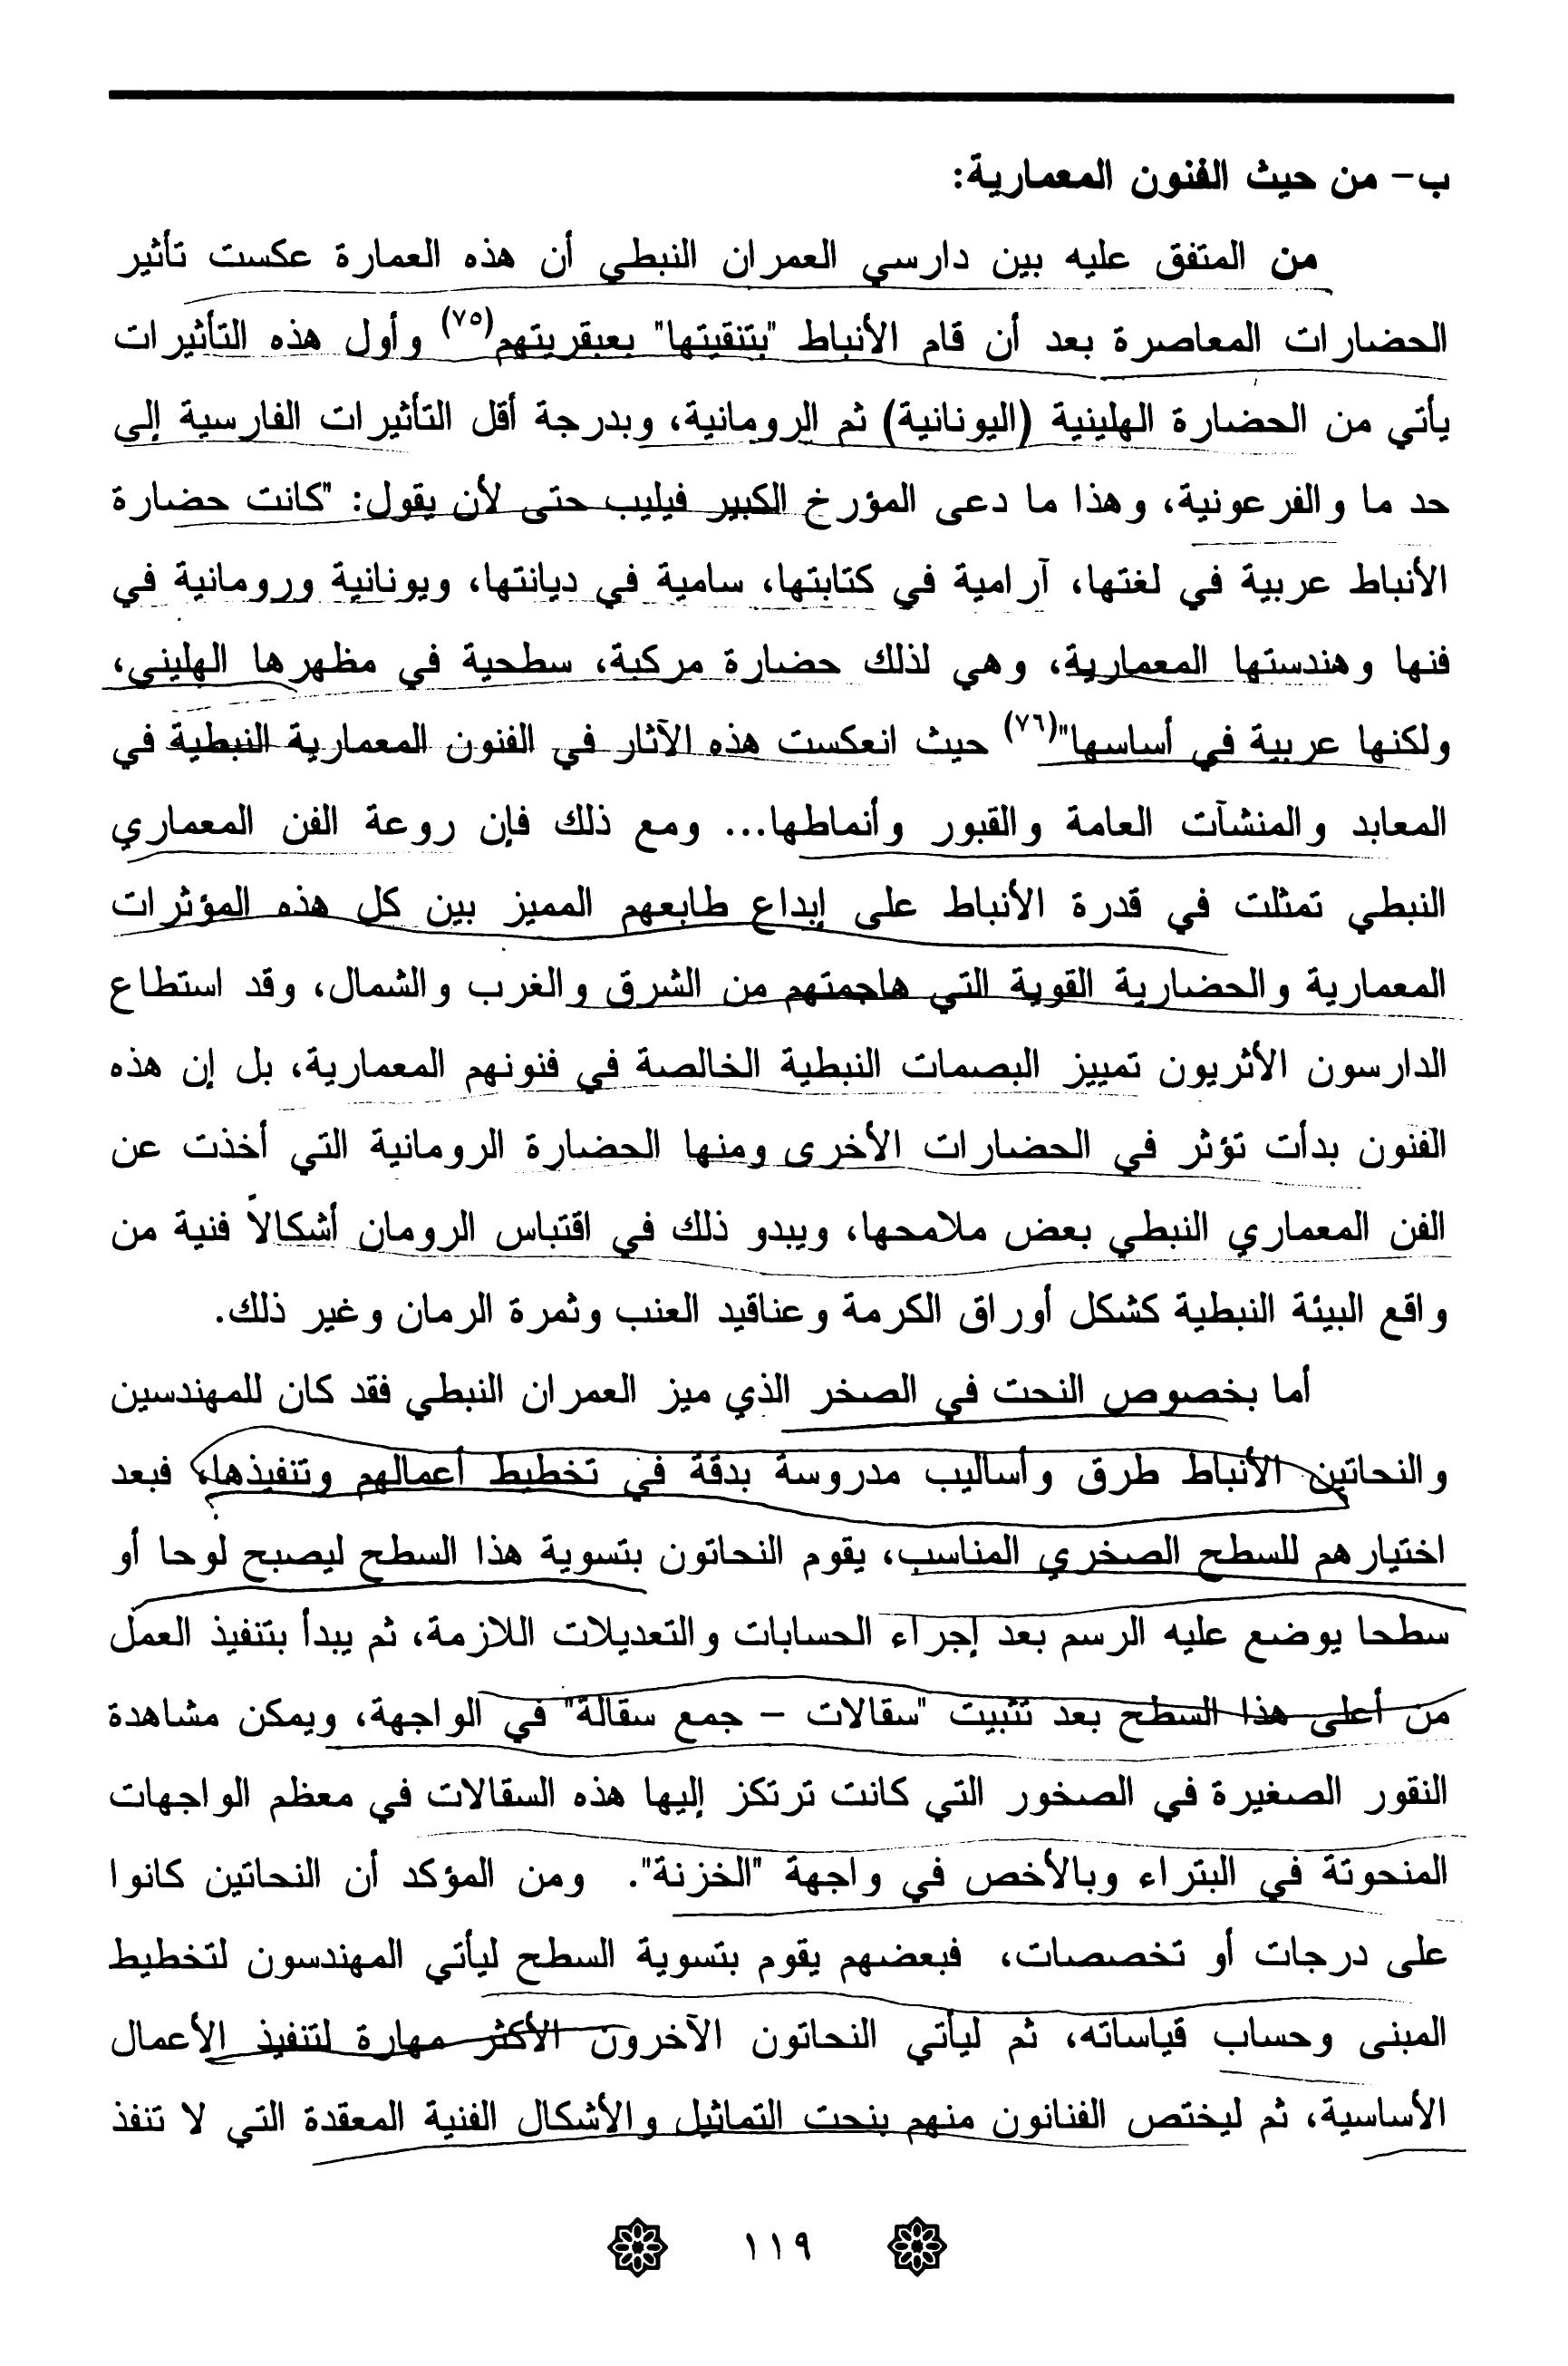 ب- من حيث الفنون المعمارية:
من المتفق عليه بين دارسي العمران النبطي أن هذه العمارة عكست تأثير
الحضارات المعاصرة بعد أن قام الأنباط "بتنقيتها" بعبقريتهم(٧٥) وأول هذه التأثيرات
يأتي من الحضارة الهلينية (اليونانية) ثم الرومانية، وبدرجة أقل التأثيرات الفارسية إلى
حد ما والفرعونية، وهذا ما دعى المؤرخ الكبير فيليب حتى لأن يقول: "كانت حضارة
الأنباط عربية في لغتها، آرامية في كتابتها، سامية في ديانتها، ويونانية ورومانية في
فنها وهندستها المعمارية، وهي لذلك حضارة مركبة، سطحية في مظهرها الهليني،
ولكنها عربية في أساسها"(٧٦) حيث انعكست هذه الآثار في الفنون المعمارية النبطية في
المعابد والمنشآت العامة والقبور وأنماطها... ومع ذلك فإن روعة الفن المعماري
النبطي تمثلت في قدرة الأنباط على إبداع طابعهم المميز بين كل هذه المؤثرات
المعمارية والحضارية القوية التي هاجمتهم من الشرق والغرب والشمال، وقد استطاع
الدارسون الأثريون تمييز البصمات النبطية الخالصة في فنونهم المعمارية، بل إن هذه
الفنون بدأت تؤثر في الحضارات الأخرى ومنها الحضارة الرومانية التي أخذت عن
الفن المعماري النبطي بعض ملامحها، ويبدو ذلك في اقتباس الرومان أشكالاً فنية من
واقع البيئة النبطية كشكل أوراق الكرمة وعناقيد العنب وثمرة الرمان وغير ذلك.
أما بخصوص النحت في الصخر الذي ميز العمران النبطي فقد كان للمهندسين
والنحاتين الأنباط طرق وأساليب مدروسة بدقة في تخطيط أعمالهم وتنفيذها، فبعد
اختيارهم للسطح الصخري المناسب، يقوم النحاتون بتسوية هذا السطح ليصبح لوحا أو
سطحا يوضع عليه الرسم بعد إجراء الحسابات والتعديلات اللازمة، ثم يبدأ بتنفيذ العمل
من أعلى هذا السطح بعد تثبيت "سقالات - جمع سقالة" في الواجهة، ويمكن مشاهدة
النقور الصغيرة في الصخور التي كانت ترتكز إليها هذه السقالات في معظم الواجهات
المنحوتة في البتراء وبالأخص في واجهة "الخزنة". ومن المؤكد أن النحاتين كانوا
على درجات أو تخصصات، فبعضهم يقوم بتسوية السطح ليأتي المهندسون لتخطيط
المبنى وحساب قياساته، ثم ليأتي النحاتون الآخرون الأكثر مهارة لتنفيذ الأعمال
الأساسية، ثم ليختص الفنانون منهم بنحت التماثيل والأشكال الفنية المعقدة التي لا تنفذ
١١٩